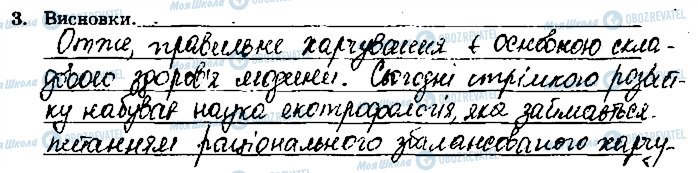 3. Висновки.
Отже, правильне харчування є основною скла-
довою здоров'я людини. Сьогодні стрімкого розвит-
ку набував наука екотрофологія, яка займається
питанням раціонального збалансованого харчу-